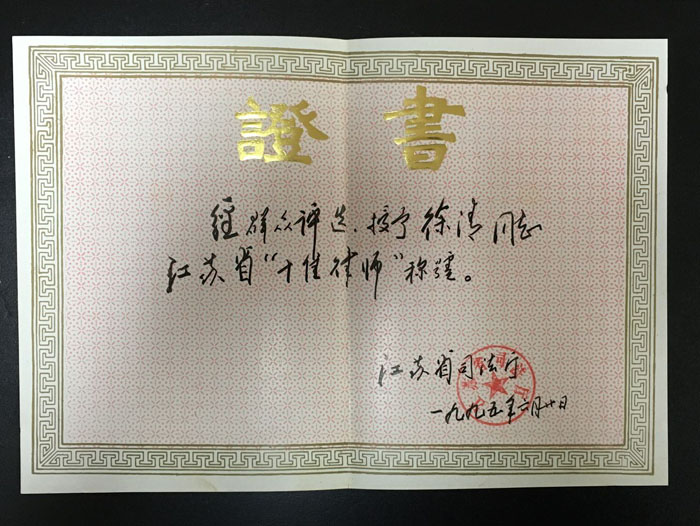 證書
經群众评选,授予徐清同志
江苏省“十佳律师”称號。
江苏省司法厅
一九九五年六月廿日